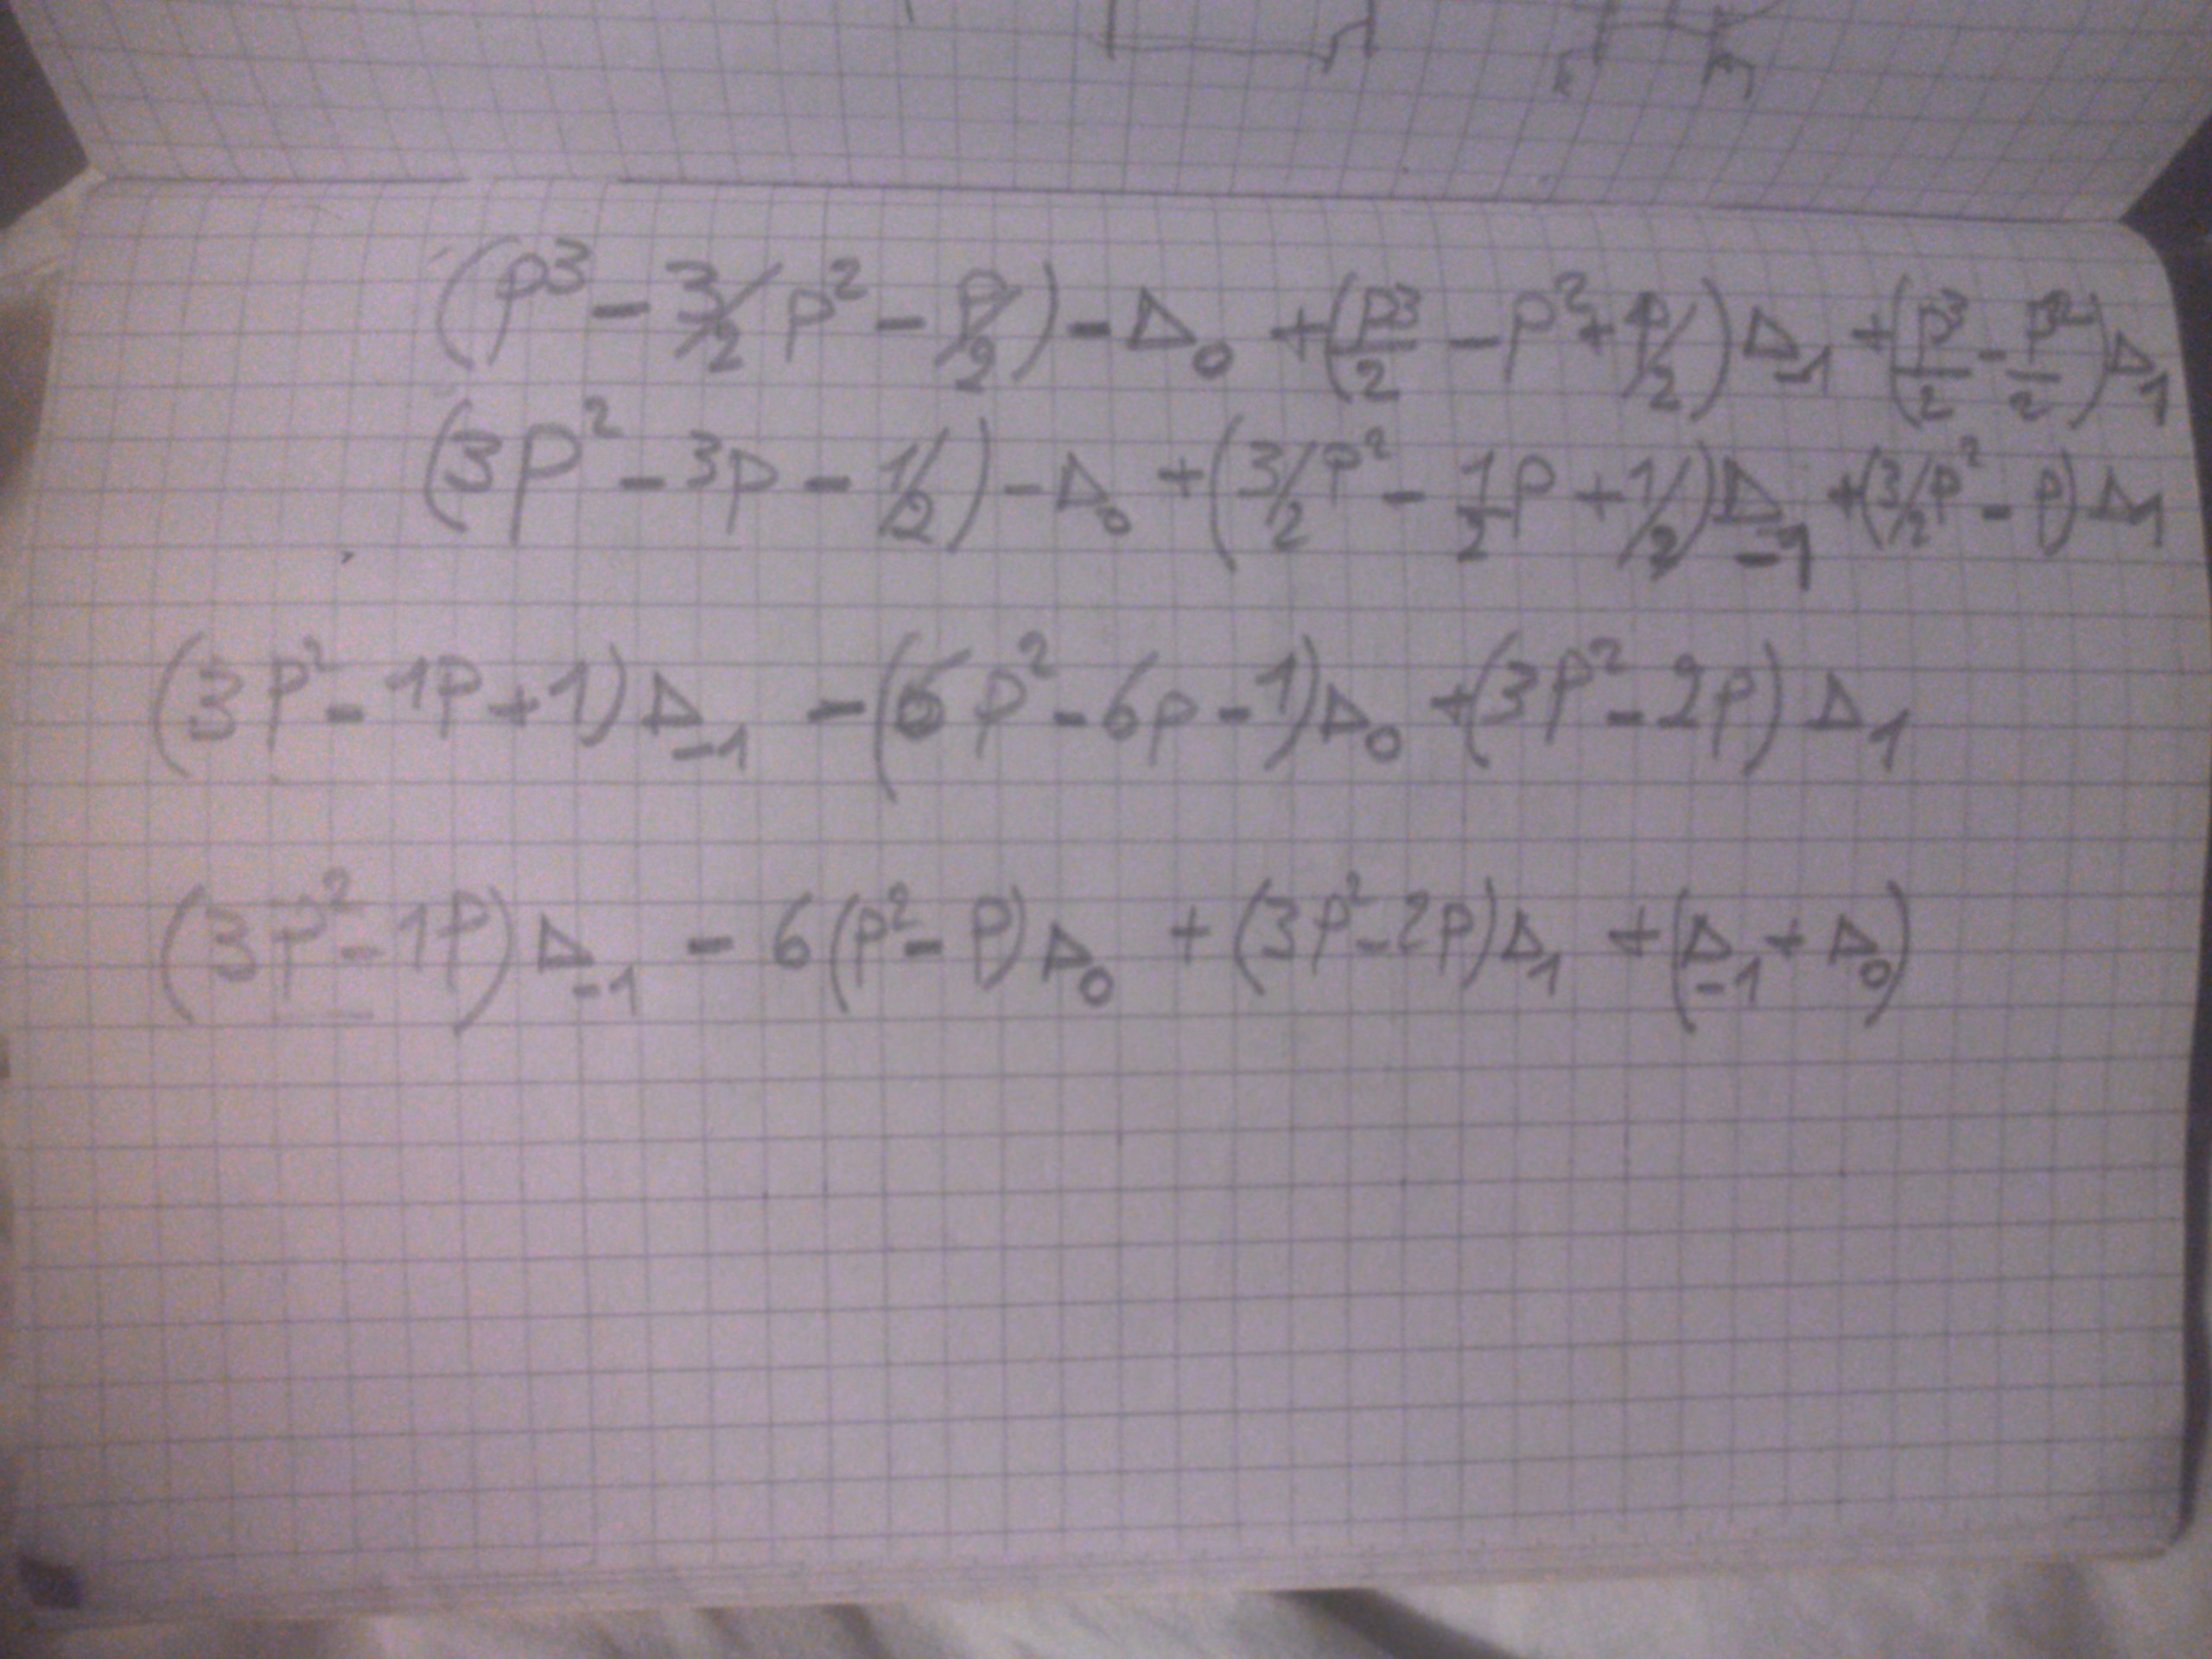 (p³ - 3/2 p² - p/2) - Δ₀ + (p³/2 - p² + p/2) Δ₋₁ + (p³/2 - p²/2) Δ₁
(3p² - 3p - 1/2) - Δ₀ + (3/2 p² - 1/2 p + 1/2) Δ₋₁ + (3/2 p² - p) Δ₁
(3p² - 1p + 1) Δ₋₁ - (6p² - 6p - 1) Δ₀ + (3p² - 2p) Δ₁
(3p² - 1p) Δ₋₁ - 6(p² - p) Δ₀ + (3p² - 2p) Δ₁ + (Δ₋₁ + Δ₀)